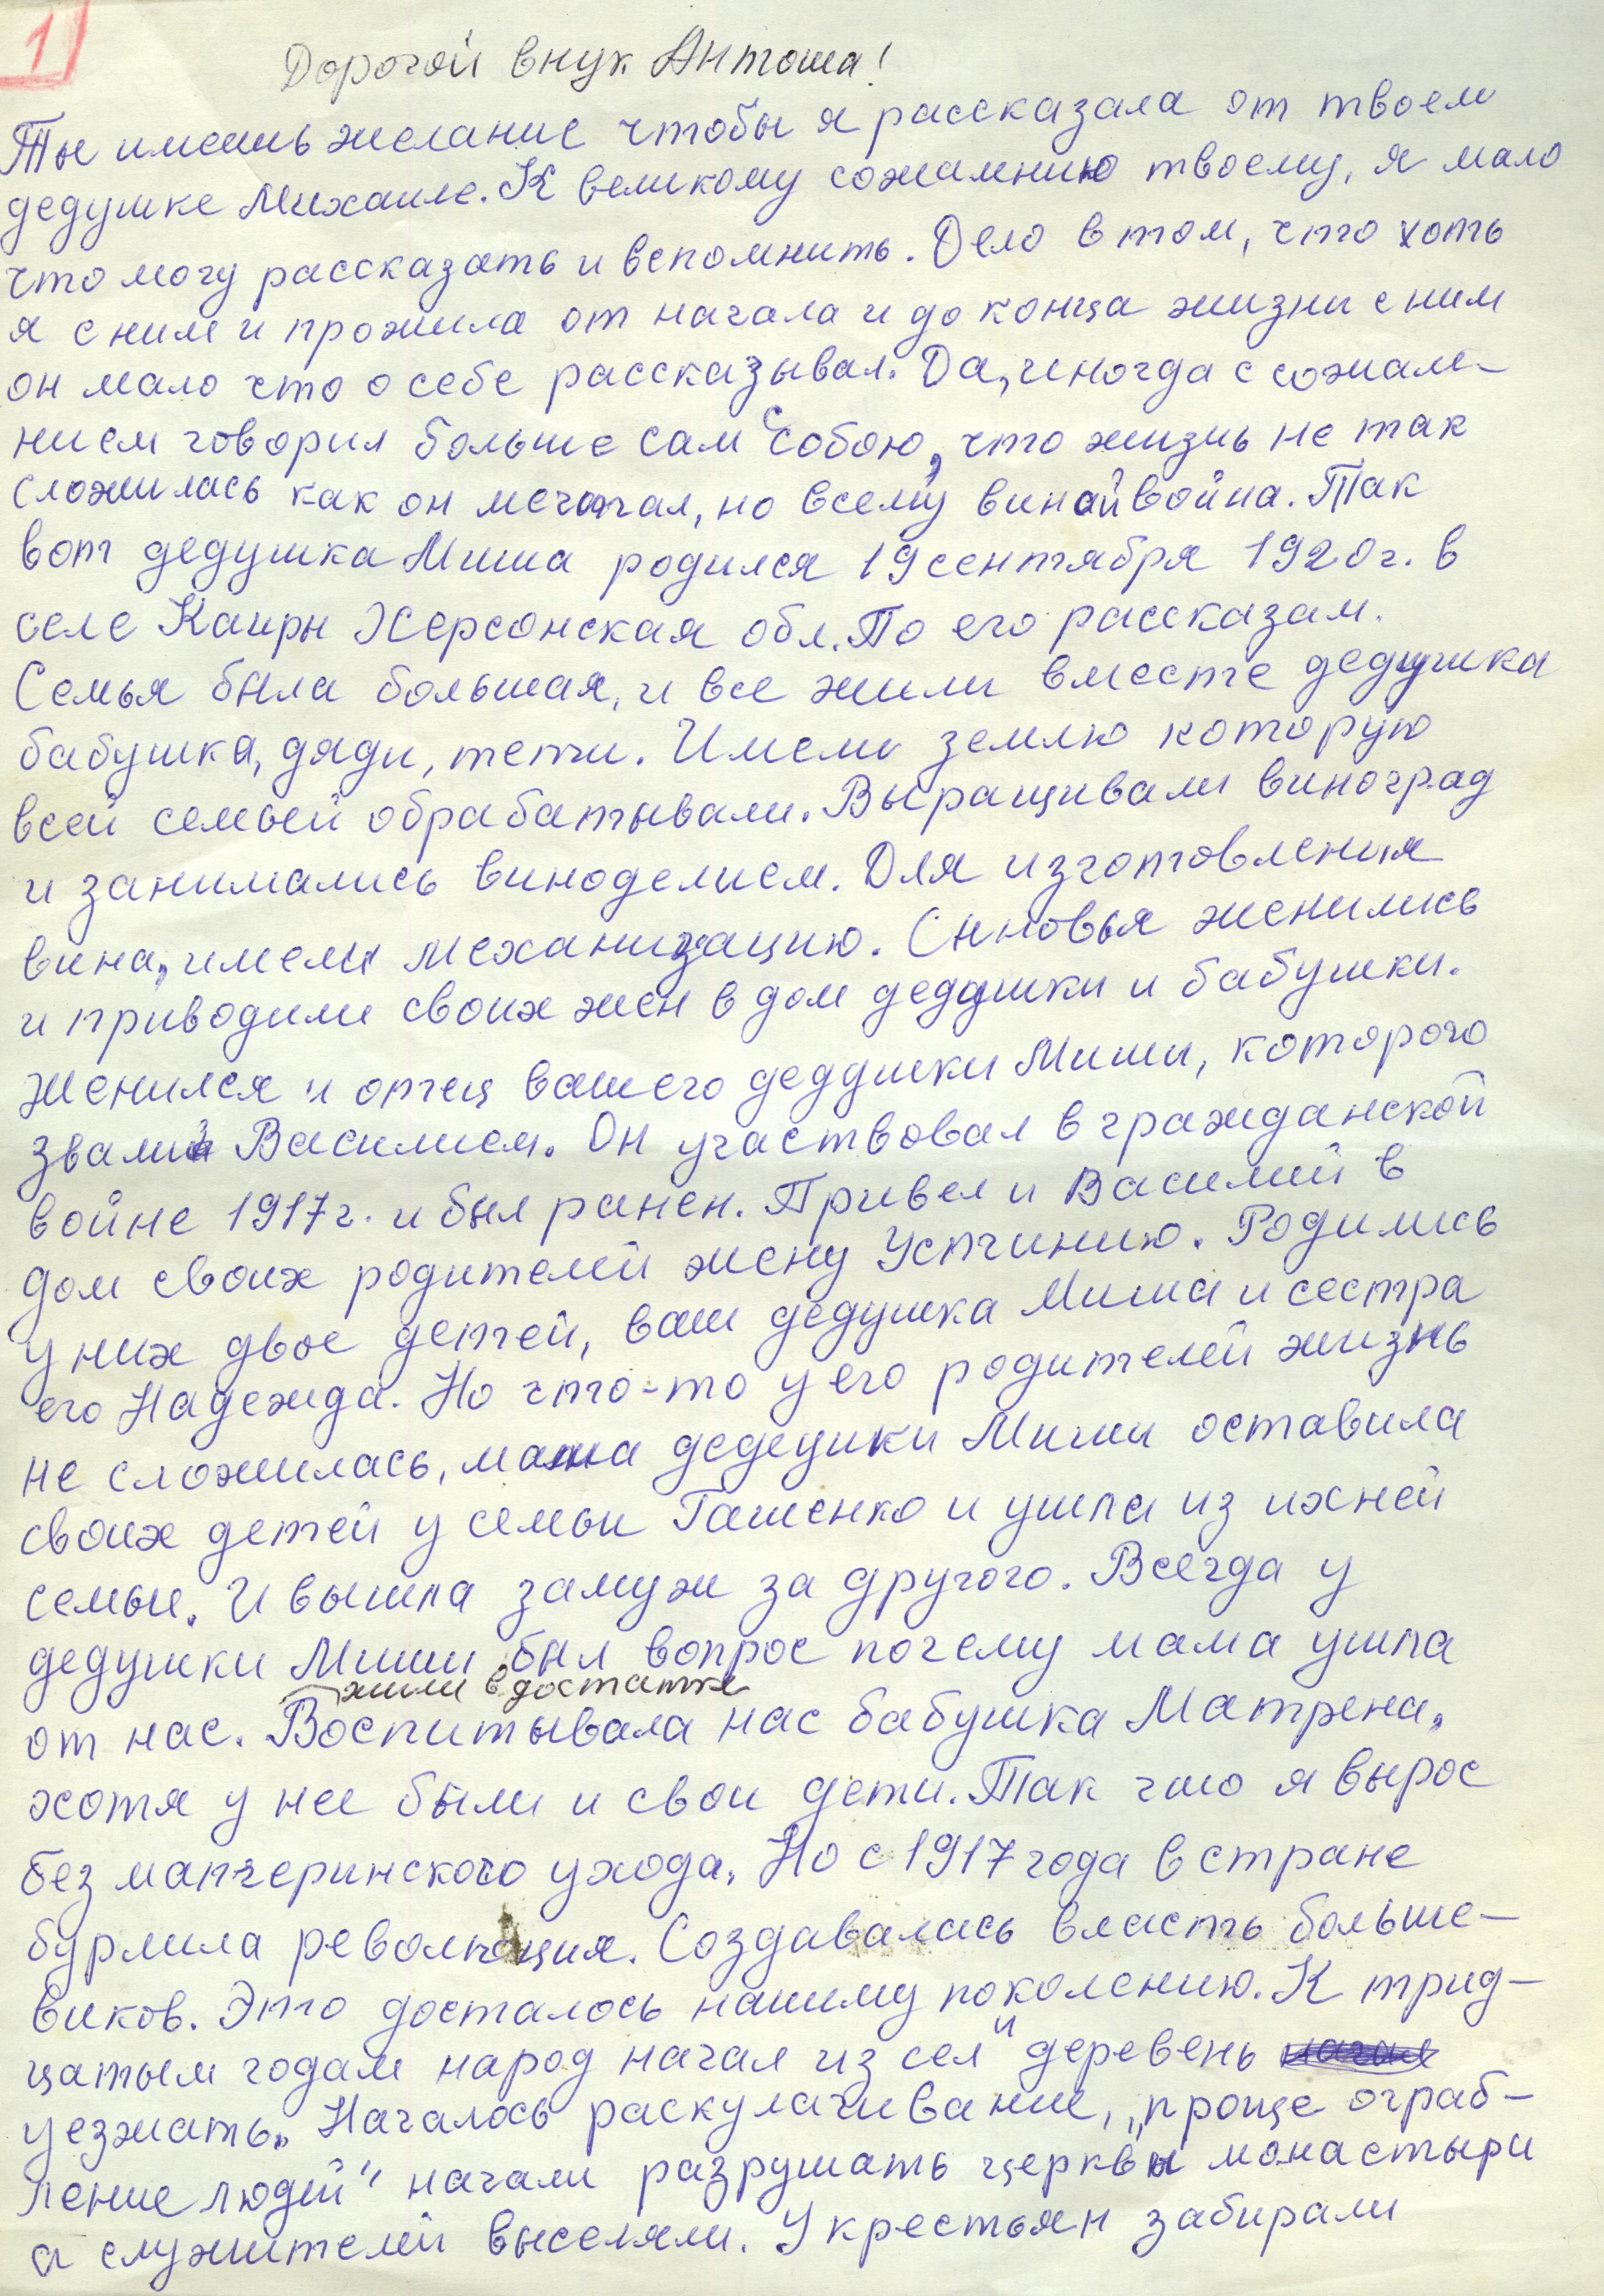 1
Дорогой внук Антоша!
Ты имеешь желание чтобы я рассказала от твоем
дедушке Михаиле. К великому сожамнию твоему, я мало
что могу рассказать и вспомнить. Дело в том, что хоть
я с ним и прожила от начала и до конца жизни с ним
он мало что о себе рассказывал. Да, иногда с сожал-
нием говорил больше сам с собою, что жизнь не так
сложилась как он мечтал, но всему виной война. Так
вот дедушка Миша родился 19 сентября 1920г. в
селе Каиры Херсонская обл. По его рассказам.
Семья была большая, и все жили вместе дедушка
бабушка, дяди, тети. Имели землю которую
всей семьей обрабатывали. Выращивали виноград
и занимались виноделием. Для изготовления
вина, имели механизацию. Сыновья женились
и приводили своих жен в дом дедушки и бабушки.
Женился и отец вашего дедушки Миши, которого
звали Василием. Он участвовал в гражданской
войне 1917г. и был ранен. Привел и Василий в
дом своих родителей жену Устинию. Родились
у них двое детей, ваш дедушка Миша и сестра
его Надежда. Но что-то у его родителей жизнь
не сложилась, мама дедеушки Миши оставила
своих детей у семьи Гашенко и ушла из ихней
семьи. И вышла замуж за другого. Всегда у
дедушки Миши был вопрос почему мама ушла
жили в достатке
от нас. Воспитывала нас бабушка Матрена,
хотя у нее были и свои дети. Так что я вырос
без материнского ухода. Но с 1917 года в стране
бурлила революция. Создавалась власть больше-
виков. Это досталось нашиму поколению. К трид-
цатым годам народ начал из сел и деревень
уезжать. Началось раскулачивание, „проще ограб-
ление людей" начали разрушать церквы монастыри
а служителей выселяли. У крестьян забирали